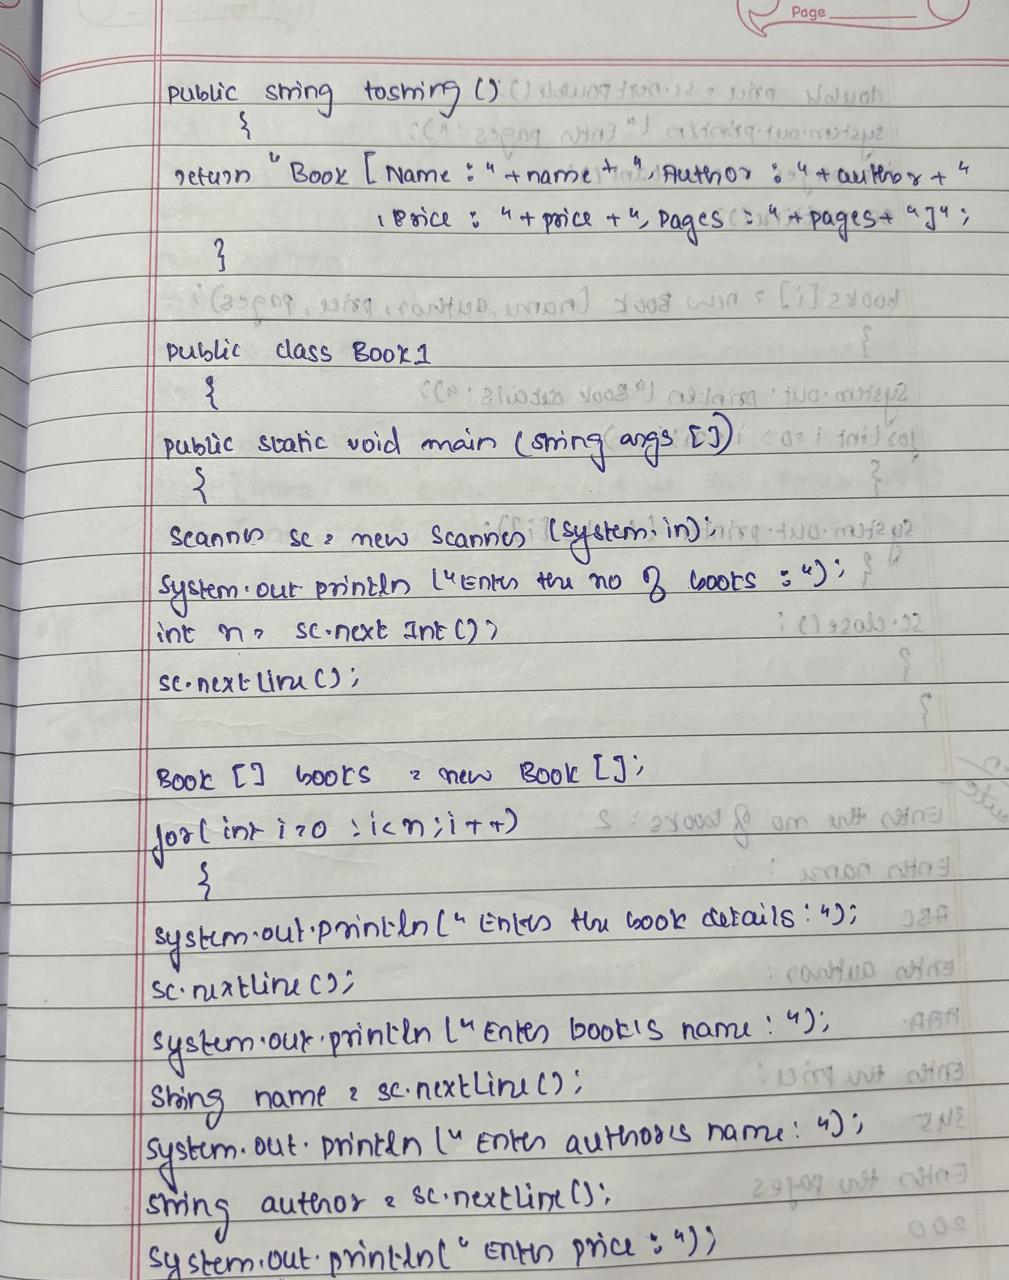 Page
public string tostring ()
{
return "Book [Name :"+name+ ", Author :"+author+"
, Price : "+price +", Pages :"+pages+ "]";
}
public class Book1
{
public static void main (string args [])
{
Scanner sc = new Scanner (system.in);
System.out println ("Enter the no of books :");
int n = sc.next Int ();
sc.nextline ();
Book [] books = new Book [];
for( int i=0 ; i<n ; i++)
{
system.out.println (" Enter the book details : ");
sc.nextline ();
system.out.println (" Enter book's name : ");
String name = sc.nextLine ();
system.out. println (" Enter author's name: ");
string author = sc.nextLine ();
System.out.println( " Enter price : ");